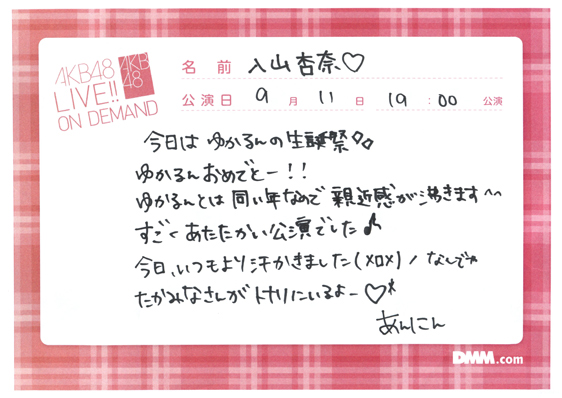 AKB48
LIVE!!
ON DEMAND
AKB
48
名前 入山杏奈♡
公演日 9月11日 19:00 公演
今日は ゆかるんの生誕祭
ゆかるんおめでとー!!
ゆかるんとは 同い年なので 親近感が沸きます^^
すごくあたたかい公演でした♪
今日、いつもより汗かきました(×ロ×)ノ なんでか
たかみなさんがトナリにいるよー♡*
あんにん
DMM.com